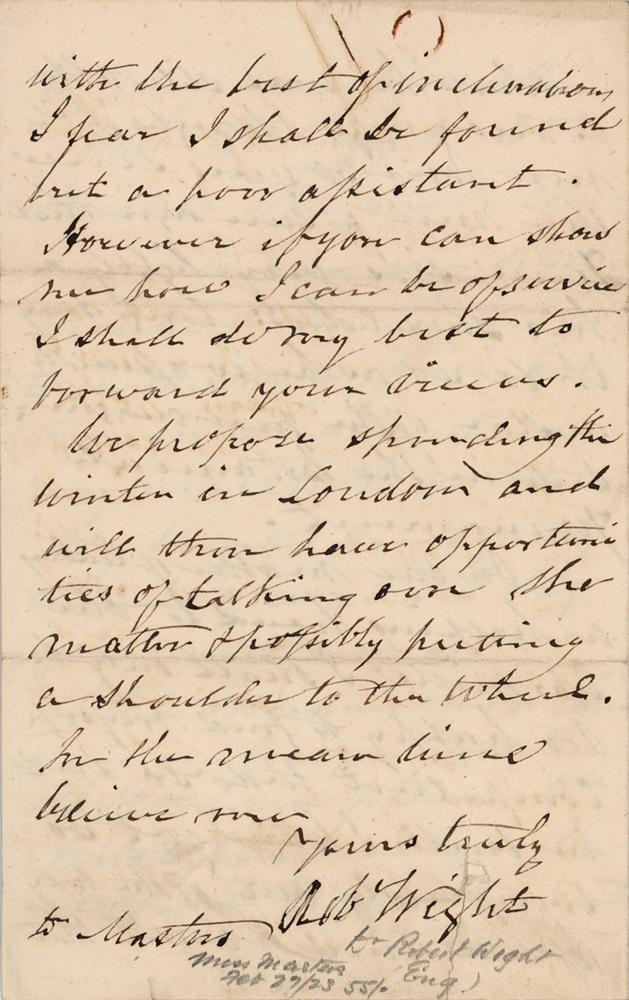 with the best of inclination
I fear I shall be found
but a poor assistant.
However if you can show
me how I can be of service
I shall do my best to
forward your views.
We propose spending the
winter in London and
will then have opportuni
ties of talking over the
matter & possibly putting
a shoulder to the wheel.
In the mean time
believe me
Yours truly
Rob Wight
to Masters
Dr Robert Wight
Miss Masters
Eng)
Feb 27/23 55/-